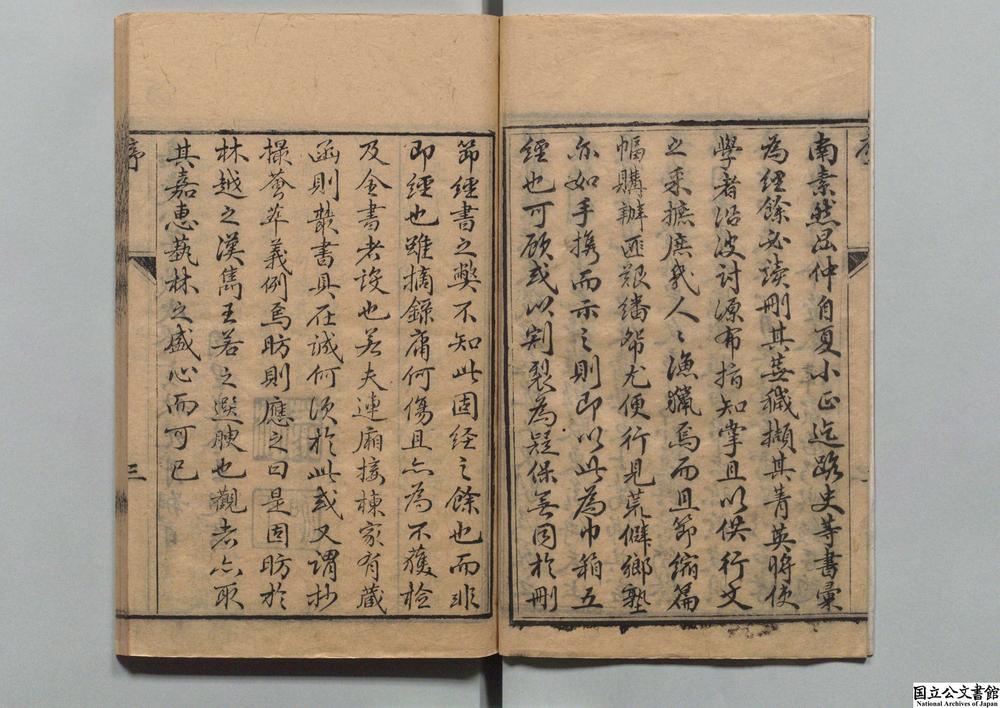 南素然出仲自夏小正迄路史等書彙
為經餘必讀刪其蕪穢擷其菁英將使
學者沿波討源布指知掌且以供行文
之采摭庶幾人〻漁獵焉而且節縮篇
幅購辦匪艱繙帑尤便行見荒僻鄉塾
亦如手携而示之則即以此為巾箱五
經也可顧或以割裂為疑保無同於刪
節經書之獘不知此固经之餘也而非
即經也雖摘錄庸何傷且亦為不獲檢
及全書者設也若夫連廂接棟家有藏
函則叢書具在誠何須於此或又謂抄
撮薈萃義例焉昉則應之曰是固昉於
林越之漢雋王若之選腴也觀者亦取
其嘉惠蓺林之盛心而可已
序
三
国立公文書館
National Archives of Japan